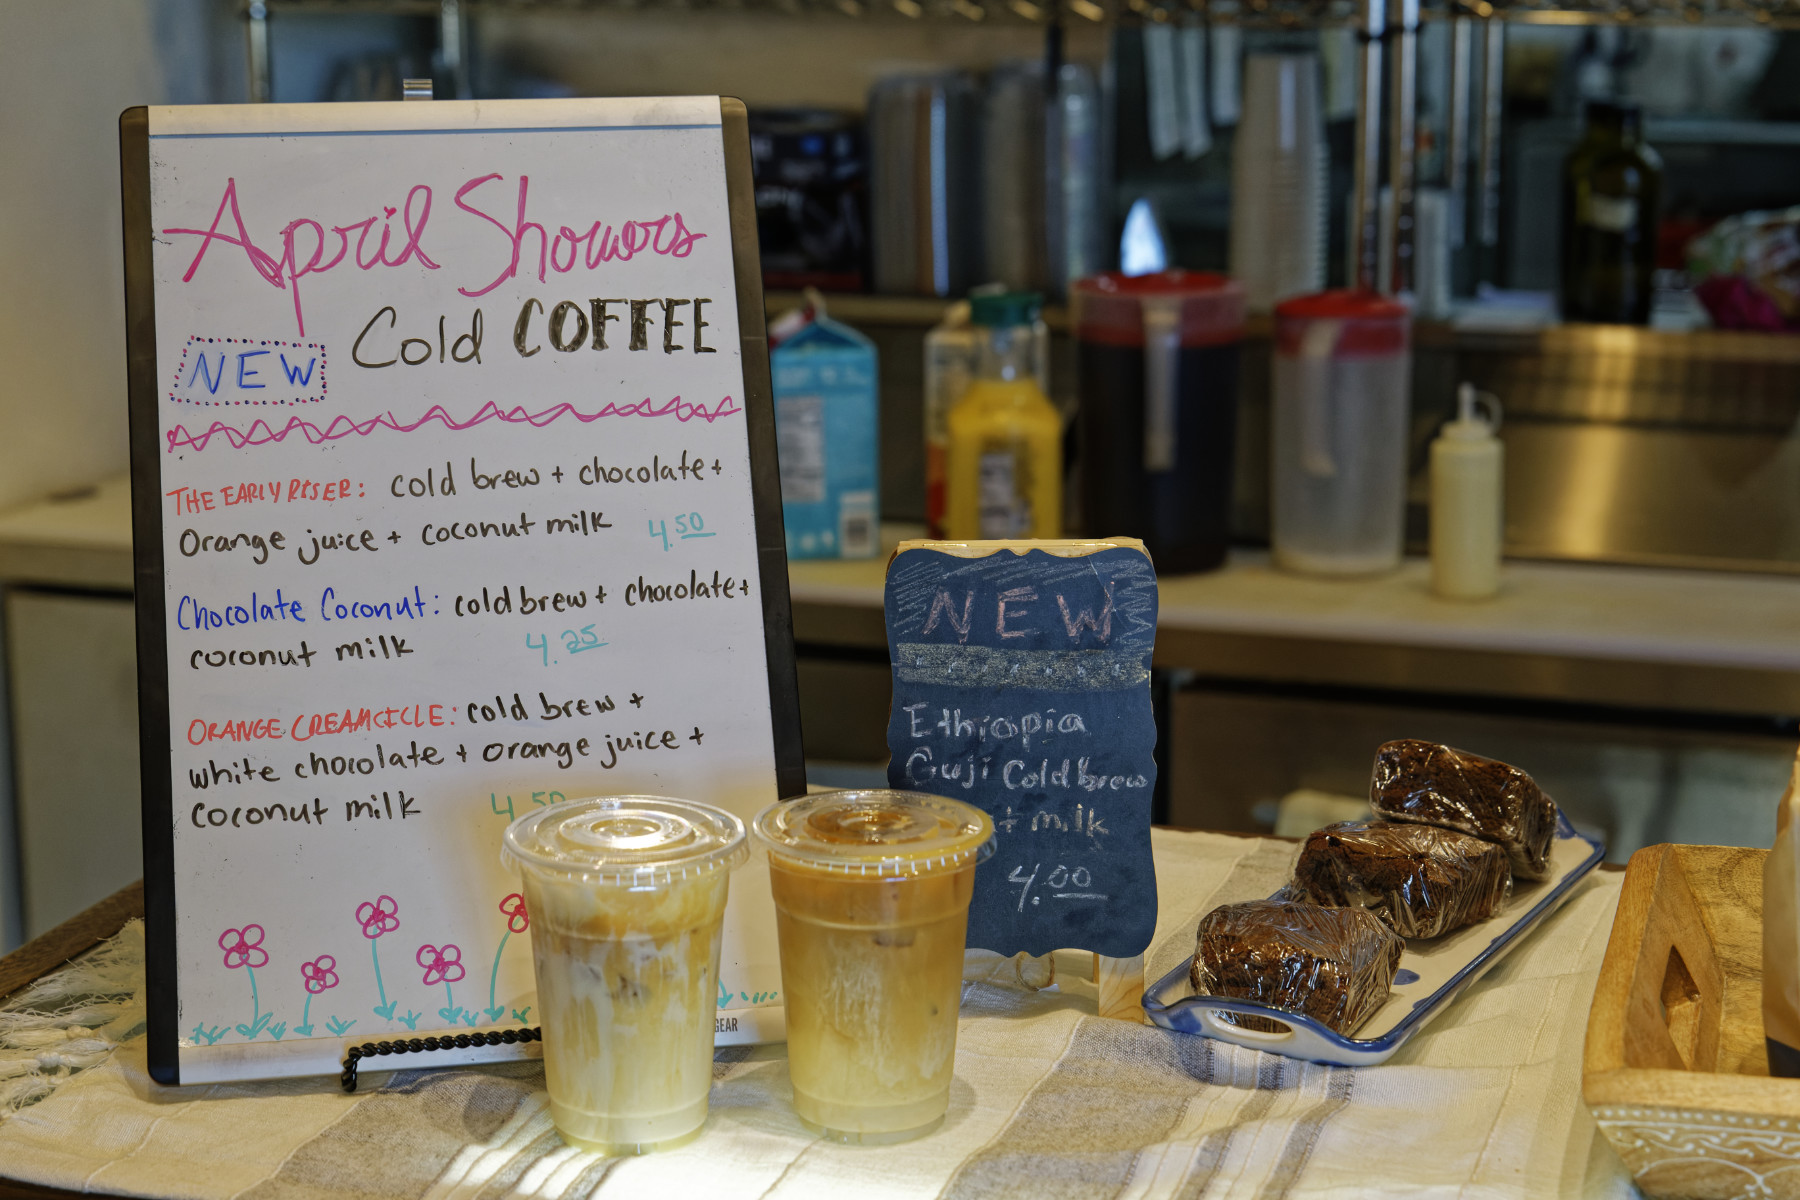 April Showers
NEW Cold COFFEE
THE EARLY RISER: cold brew + chocolate +
Orange juice + coconut milk 4.50
Chocolate Coconut: cold brew + chocolate +
coconut milk 4.25
ORANGE CREAMCICLE: cold brew +
white chocolate + orange juice +
coconut milk 4.50
GEAR
NEW
Ethiopia
Guji Cold brew
+ milk
4.00